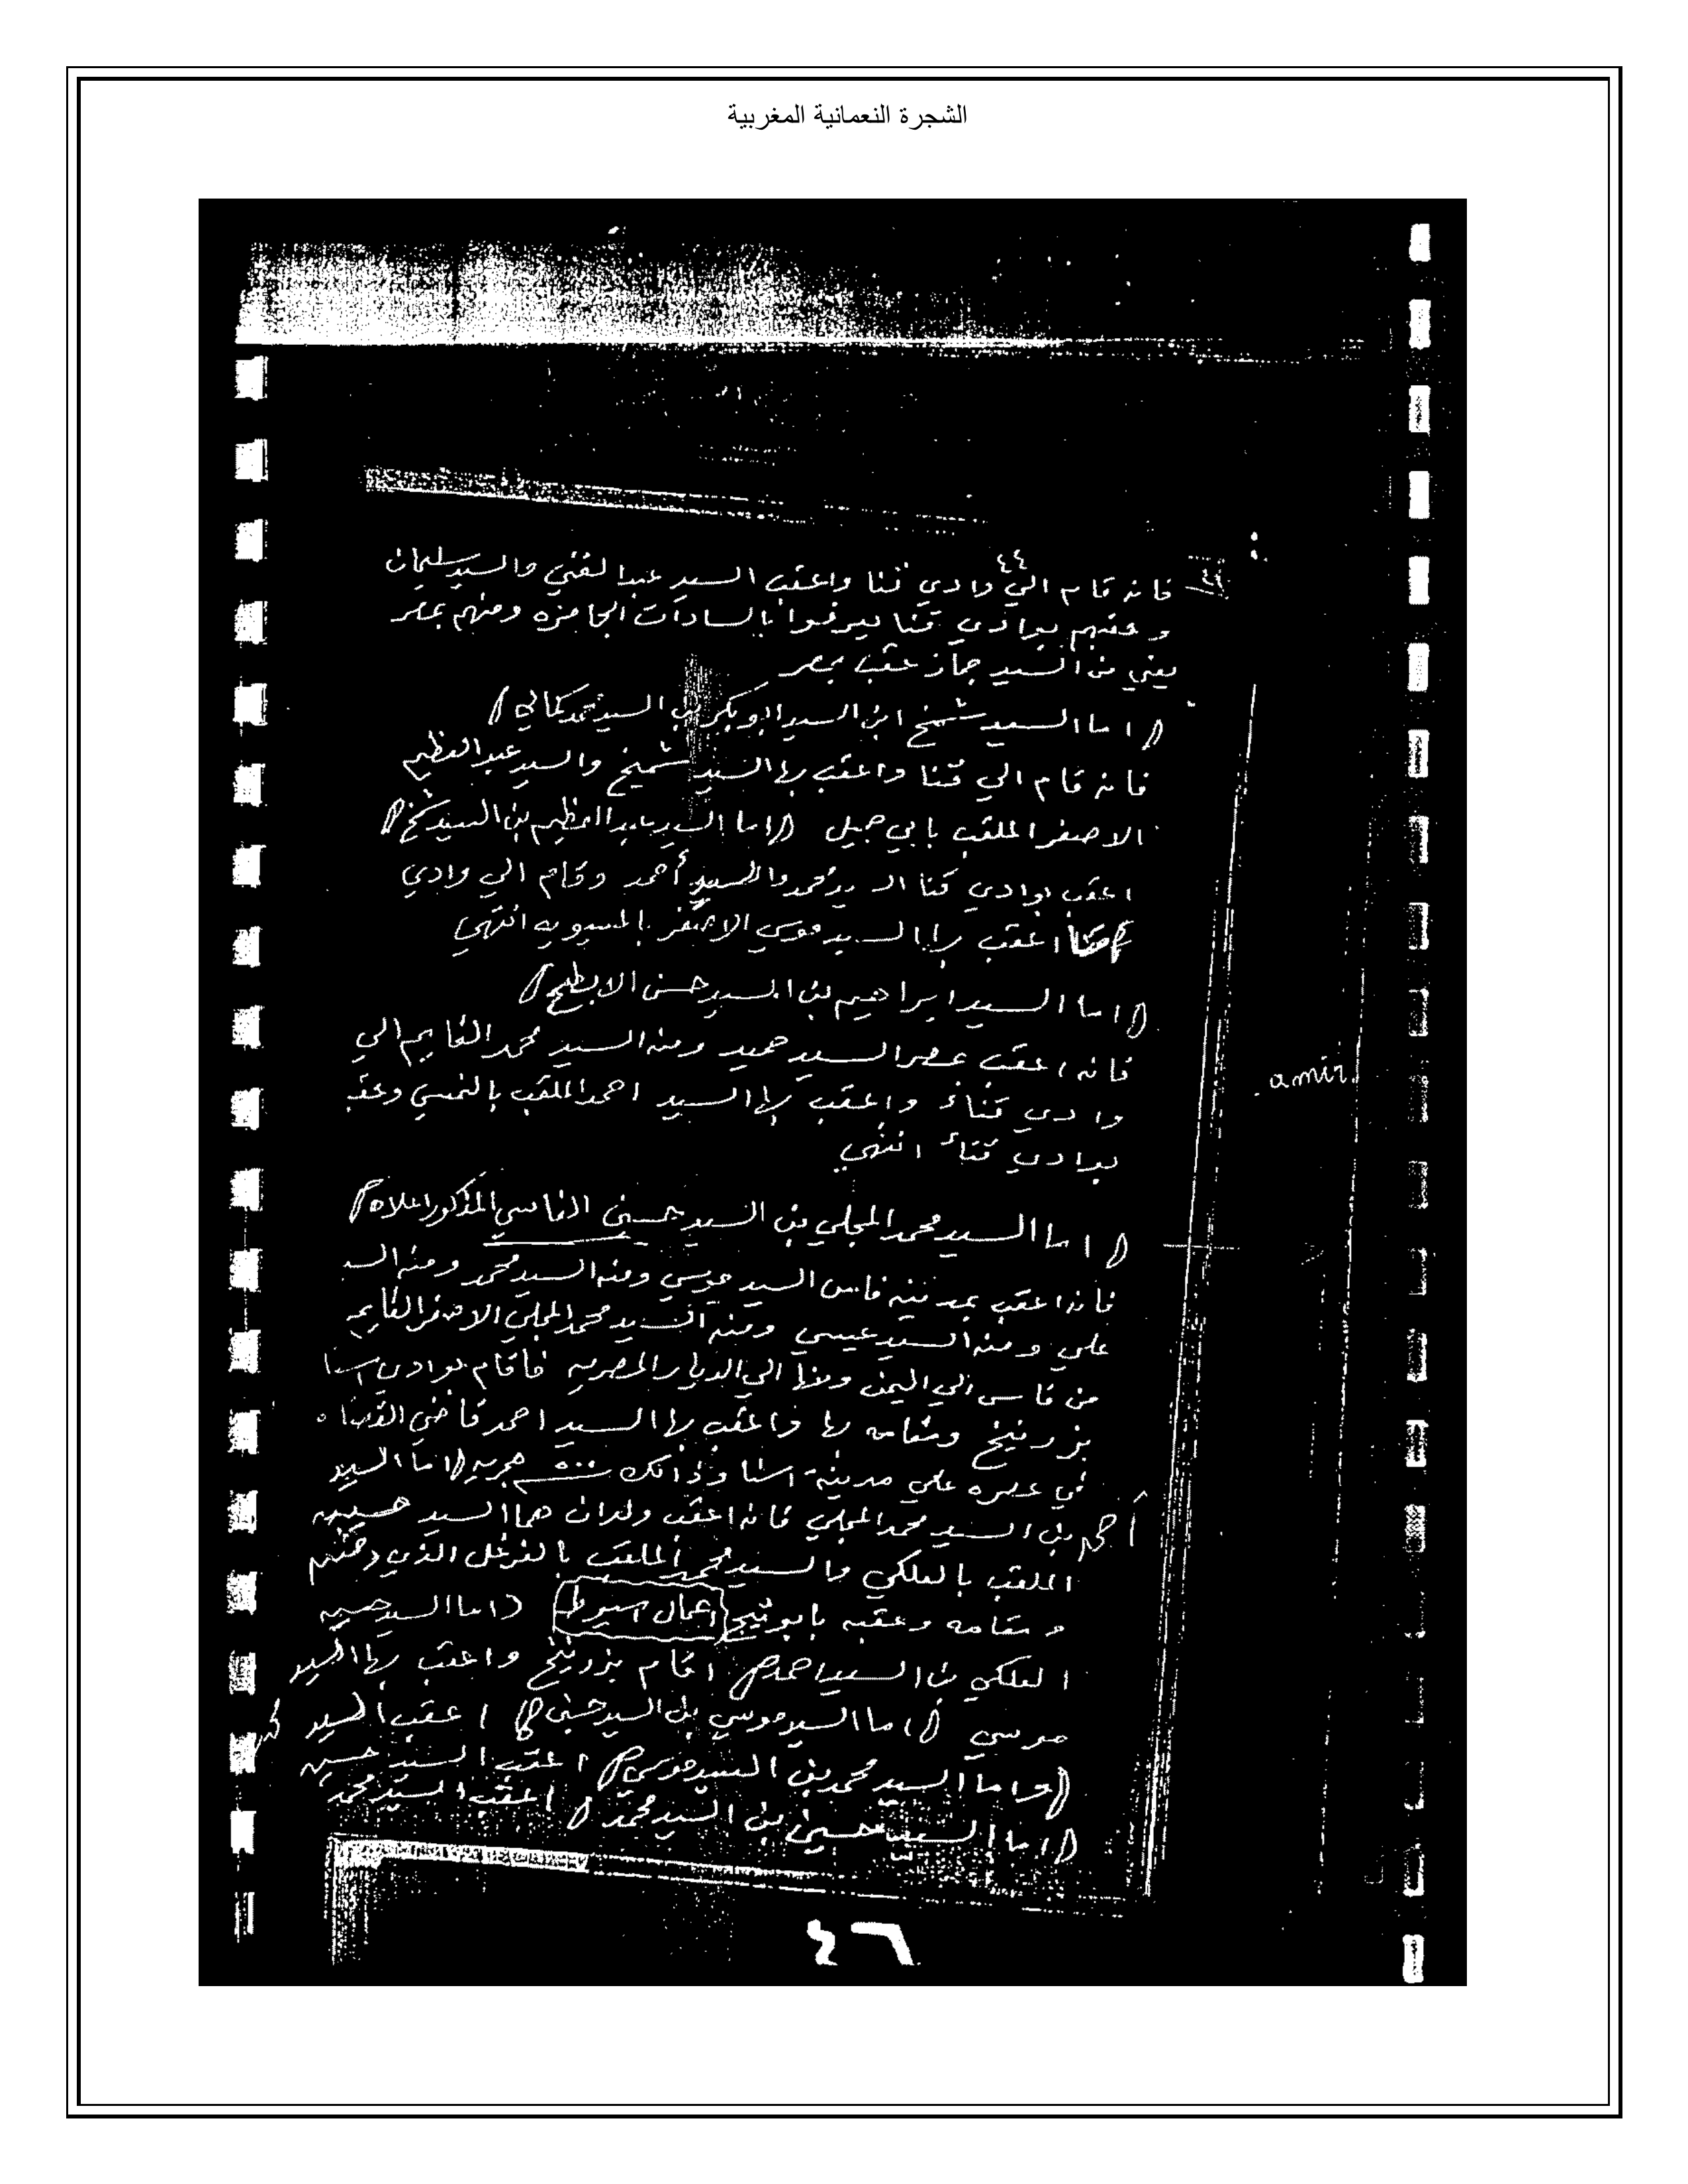 الشجرة النعمانية المغربية
٤٤
فانه قام الي وادي قنا واعقب السيد عبدالغني والسيد سليمان
وعقبهم بوادي قنا يعرفوا بالسادات الجامزه ومنهم بمصر
يعني من السيد جماز عقب بمصر
(اما السيد شميخ ابن السيد ابوبكر بن السيد محمد كمالي)
فانه قام الي قنا واعقب بها السيد شميخ والسيد عبدالعظيم
الاصغر الملقب بابي جميل (اما السيد عبدالعظيم بن السيد شميخ)
اعقب بوادي قنا السيد محمد والسيد أحمد وقام الي وادي
اعقب بها السيد موسي الاصغر انتهي
(اما السيد ابراهيم بن السيد حسن الابطح)
فانه اعقب بمصر السيد حميد ومنه السيد محمد القايم الي
وادي قناء واعقب بها السيد احمد الملقب بالنمسي وعقبه
بوادي قناء انتهي
(اما السيد محمد المجلي بن السيد حسين الفاسي المذكور اعلاه)
فانه اعقب بمدينة فاس السيد موسي ومنه السيد محمد ومنه السيد
علي ومنه السيد عيسي ومنه السيد محمد المجلي الاصغر القايم
amir
من فاس الي اليمن ومنها الي الديار المصريه فاقام بوادي اسنا
بزرنيخ ومقامه بها واعقب بها السيد احمد قاضي القضاه
في عصره علي مدينة اسنا وذالك هجريه (اما السيد
احمد بن السيد محمد المجلي فانه اعقب ولدان هما السيد حسين
الملقب بالعلكي والسيد محمد الملقب بالفرغل الذي
ومقامه وعقبه بابو تيج اعمال اسيوط (اما السيد حسين
العلكي بن السيد احمد) اقام بزرنيخ واعقب بها السيد
موسي (اما السيد موسي بن السيد حسين) اعقب السيد محمد
(واما السيد محمد بن السيد موسي) اعقب السيد حسين
(اما السيد حسين بن السيد محمد) اعقب السيد محمد
٤٦